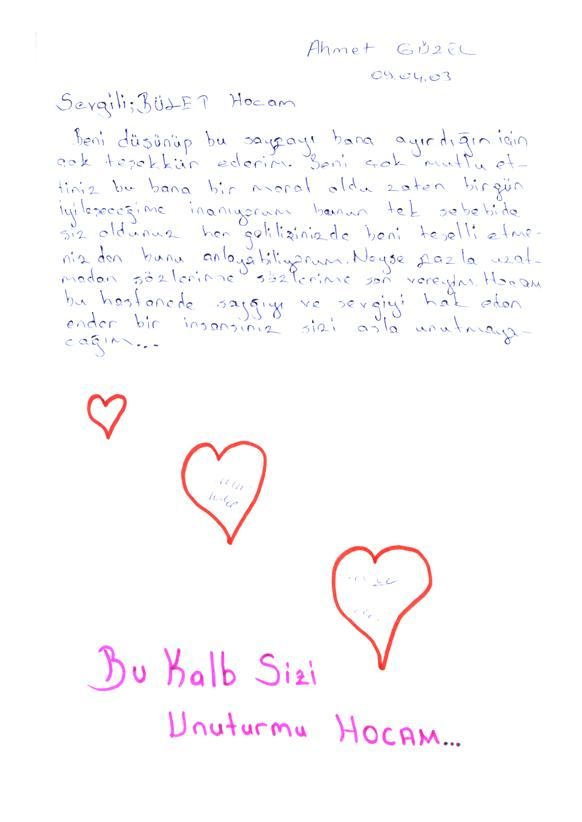 Ahmet GÜZEL
09.04.03
Sevgili; BÜLET Hocam
Beni düşünüp bu sayfayı bana ayırdığın için
çok teşekkür ederim. Beni çok mutlu et-
tiniz bu bana bir moral oldu zaten birgün
iyileşeceğime inanıyorum bunun tek sebebide
siz oldunuz her gelilişinizde beni teselli etme-
nizden bunu anlayabiliyorum. Neyse fazla uzat-
madan sözlerime sözlerime son vereyim. Hocam
bu hastanede saygıyı ve sevgiyi hak eden
ender bir insansınız sizi asla unutmaya-
cağım...
Bu Kalb Sizi
Unuturmu HOCAM...